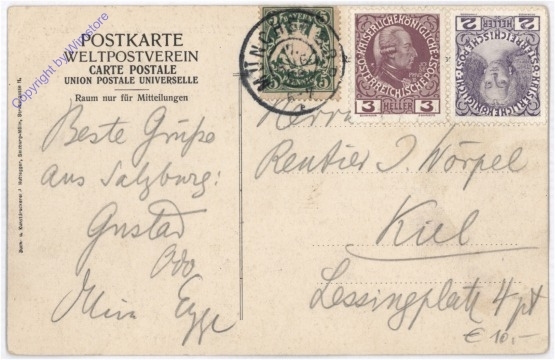 POSTKARTE
WELTPOSTVEREIN
CARTE POSTALE
UNION POSTALE UNIVERSELLE
Raum nur für Mitteilungen
Copyright by Winstore
Beste Grüße
aus Salzburg:
Gustav
Odo
Mina Egge
MÜNCHEN
5 5
KAISERLICHE KÖNIGLICHE
ÖSTERREICHISCHE POST
3 HELLER 3
2 HELLER 2
KAISERLICHE KÖNIGLICHE
ÖSTERREICHISCHE POST
Herrn
Rentier J. Wörpel
Kiel
Lessingplatz 4 pt
€ 10,-